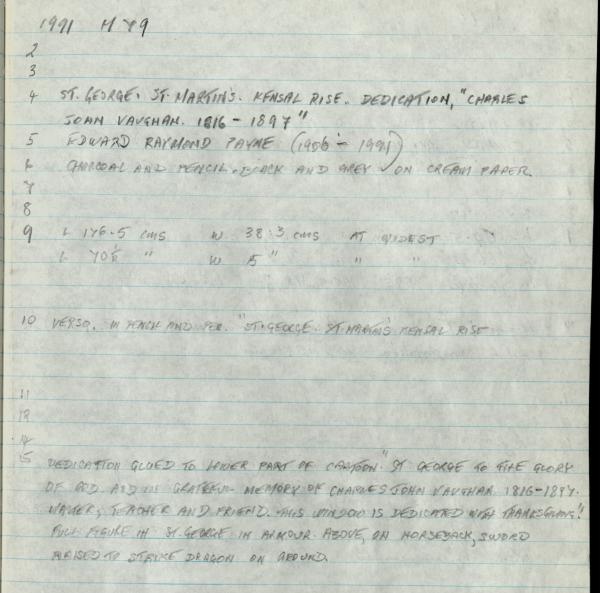 1991 M Y9
2
3
4 ST. GEORGE. ST. MARTIN'S. KENSAL RISE. DEDICATION, "CHARLES
JOHN VAUGHAN. 1816 - 1897"
5 EDWARD RAYMOND PAYNE (1906 - 1991)
6 CHARCOAL AND PENCIL. BLACK AND GREY ON CREAM PAPER.
7
8
9 L 176.5 cms W 38.3 cms AT WIDEST
L " W 15 " " "
10 VERSO. IN PENCIL AND "ST. GEORGE. ST. MARTIN'S KENSAL RISE
11
12
14
15 DEDICATION GLUED TO LOWER PART OF CARTOON "ST GEORGE TO THE GLORY
OF GOD. AND IN GRATEFUL MEMORY OF CHARLES JOHN VAUGHAN. 1816-1897.
TEACHER AND FRIEND. THIS WINDOW IS DEDICATED WITH THANKSGIVING".
FULL FIGURE ST. GEORGE IN ARMOUR ABOVE, ON HORSEBACK, SWORD
RAISED TO STRIKE DRAGON ON GROUND.